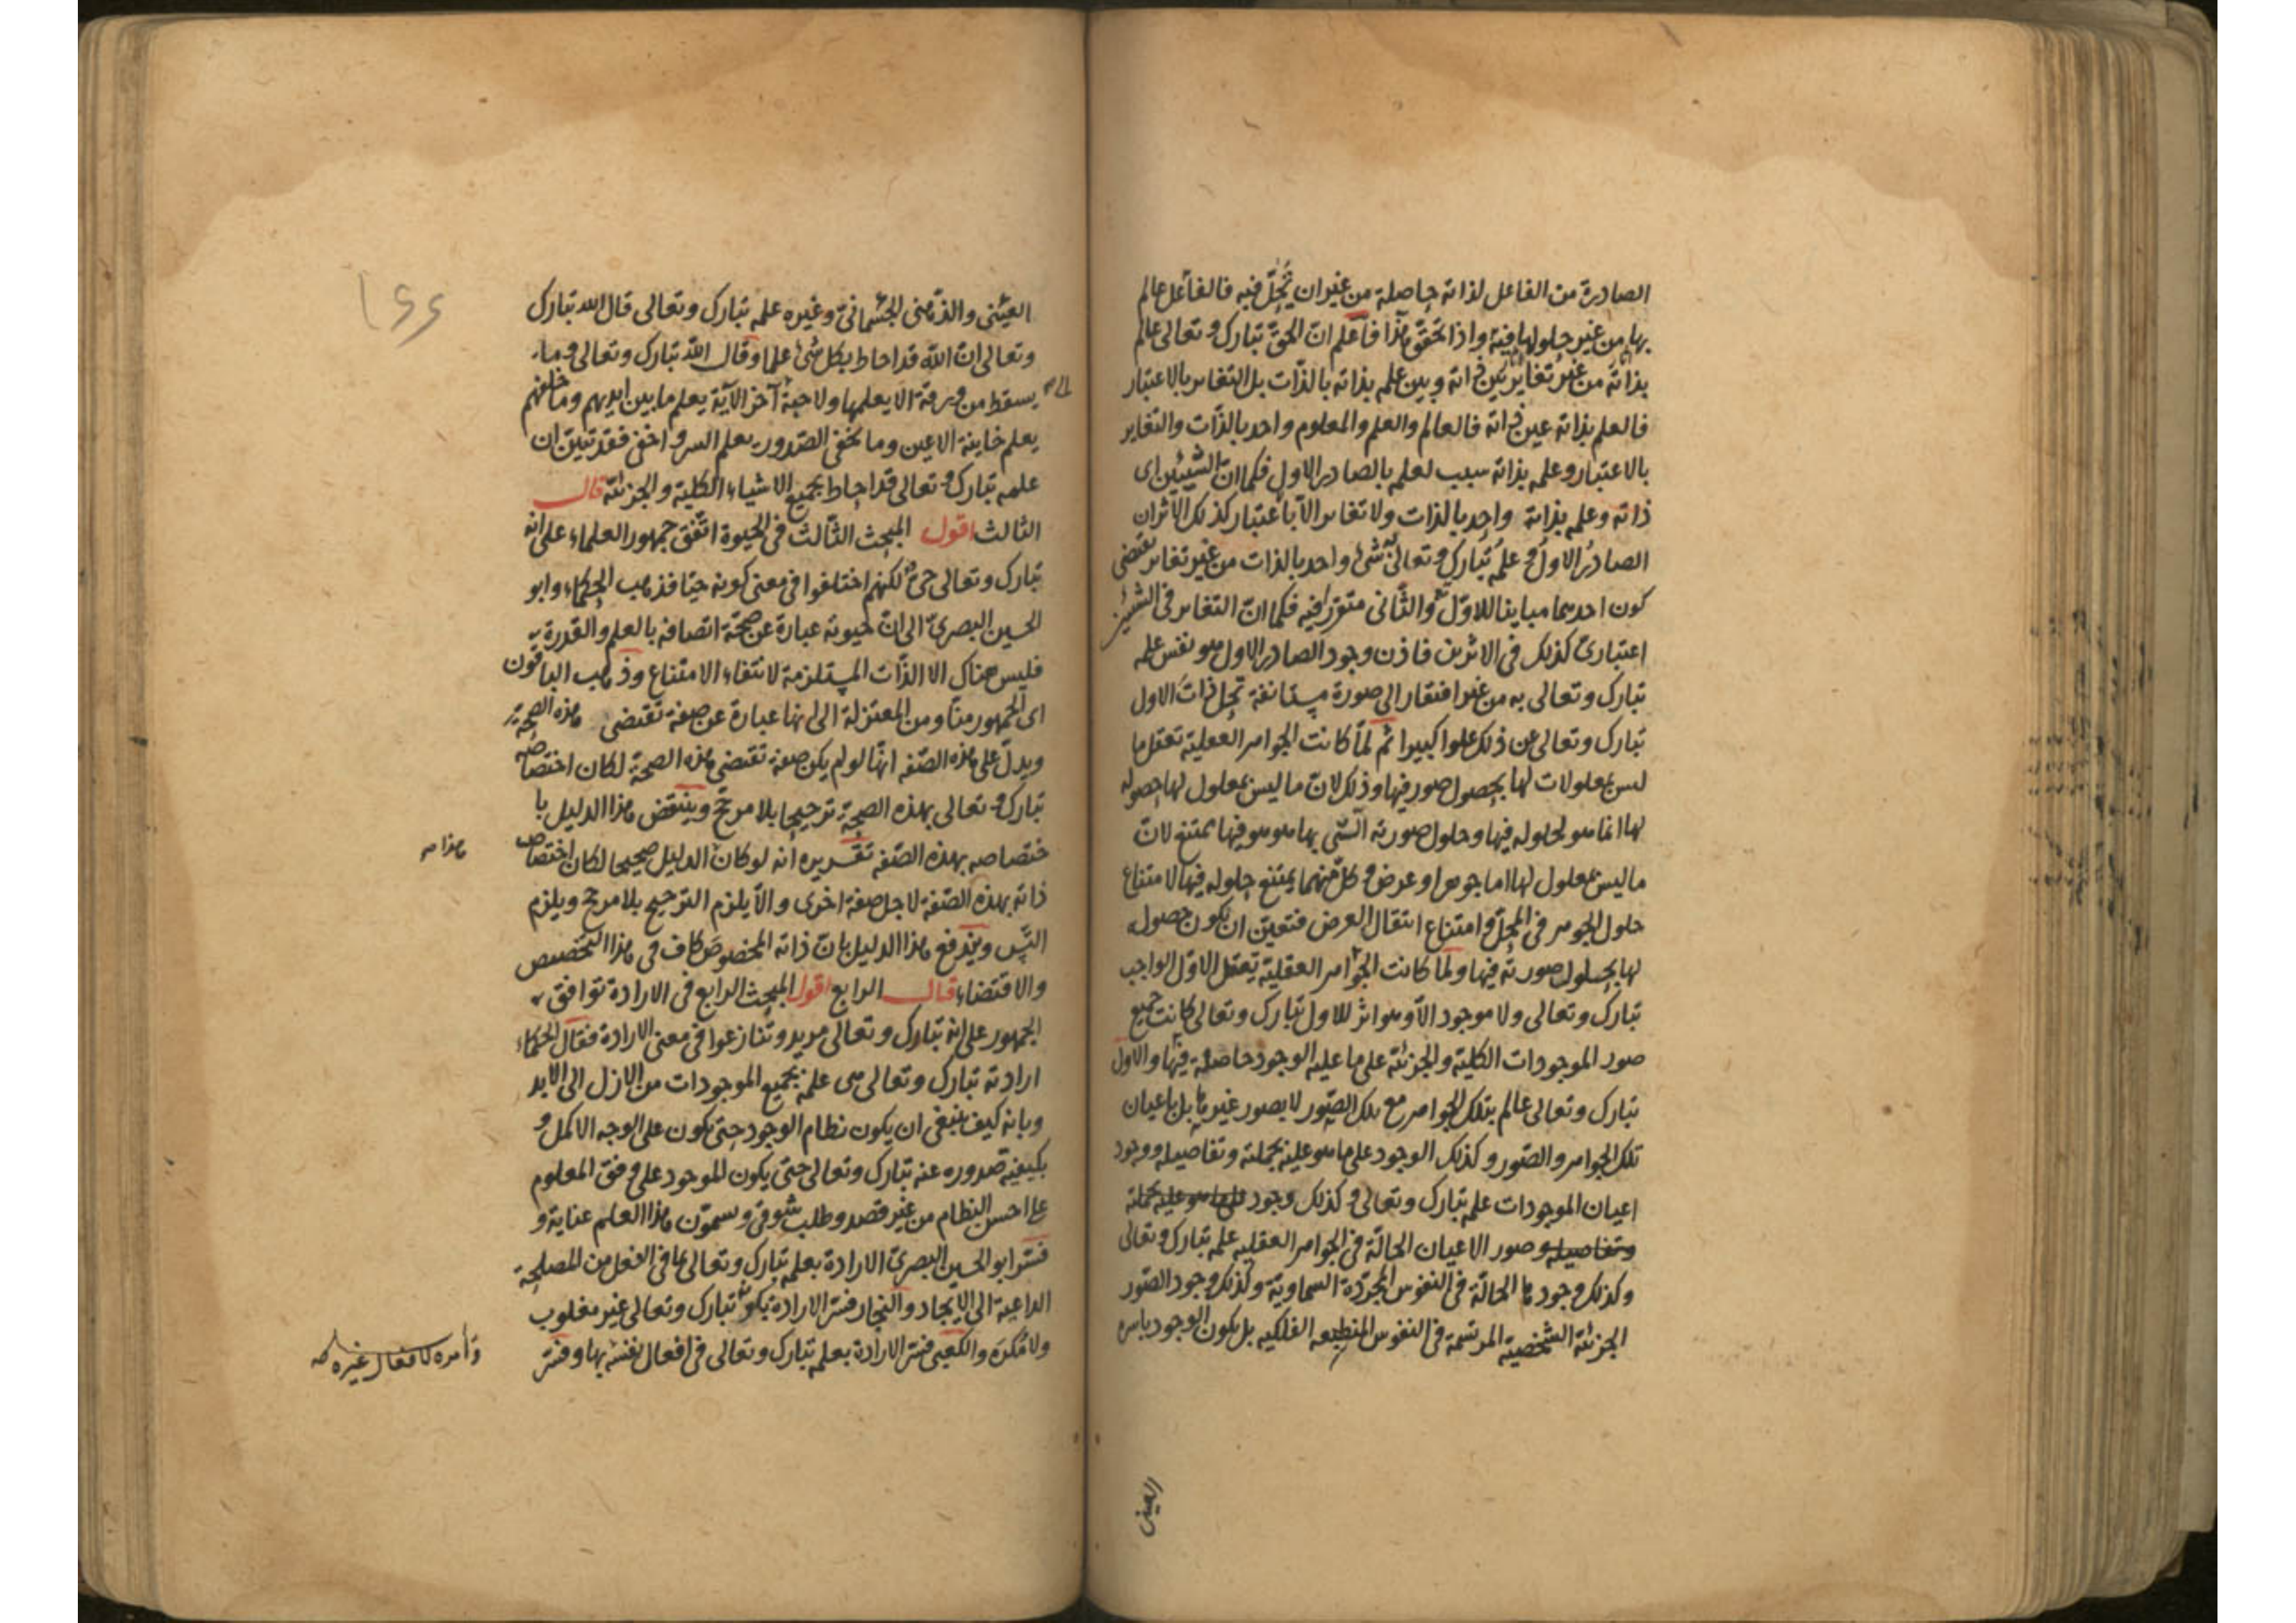 الصادرة من الفاعل لذاته حاصلة من غير ان تحلّ فيه فالفاعل عالم
بها من غير حلولها فيه واذا تحقق هذا فاعلم انّ الحق تبارك وتعالى عالم
بذاته من غير تغاير بين ذاته وبين علمه بذاته بالذّات بل التغاير بالاعتبار
فالعلم بذاته عين ذاته فالعالم والعلم والمعلوم واحد بالذّات والتغاير
بالاعتبار وعلمه بذاته سبب لعلمه بالصادر الاول فكما انّ الشيئين اى
ذاته وعلمه بذاته واحد بالذات ولا تغاير الّا باعتبار كذلك الاثران
الصادر الاول و علمه تبارك وتعالى به شئ واحد بالذات من غير تغاير يقتضى
كون احدهما مباينا للاوّل والثّانى متقررا فيه فكما انّ التغاير فى الشيئين
اعتبارىّ كذلك فى الاثرين فاذن وجود الصادر الاول هو نفس علمه
تبارك وتعالى به من غير افتقار الى صورة مستانفة تحلّ ذات الاول
تبارك وتعالى عن ذلك علوا كبيرا ثم لمّا كانت الجواهر العقلية تعقل ما
ليس بمعلولات لها بحصول صور فيها وذلك لانّ ما ليس بمعلول لها حصوله
لها انما هو لحلوله فيها وحلول صورته الّتى بها هو هو فيها يمتنع لانّ
ما ليس بمعلول لها اما جوهر او عرض و كل منهما يمتنع حلوله فيها لامتناع
حلول الجوهر فى المحلّ وامتناع انتقال العرض فتعين ان يكون حصوله
لها بحلول صورته فيها ولمّا كانت الجواهر العقلية تعقل الاوّل الواجب
تبارك وتعالى ولا موجود الّا وهو اثر للاول تبارك وتعالى كانت جميع
صور الموجودات الكلية والجزئية على ما عليه الوجود حاصلة فيها والاول
تبارك وتعالى عالم بتلك الجواهر مع تلك الصّور لا بصور غيرها بل باعيان
تلك الجواهر والصّور وكذلك الوجود على ما هو عليه بجملته وتفاصيله ووجود
اعيان الموجودات علمه تبارك وتعالى و كذلك وجود على ما هو عليه بجملته
وتفاصيله وصور الاعيان الحالّة فى الجواهر العقلية علمه تبارك وتعالى
وكذلك وجودها الحالّة فى النفوس المجرّدة السماوية وكذلك وجود الصّور
الجزئية الشخصية المرتسمة فى النفوس المنطبعة الفلكيه بل يكون الوجود باسره
العينى
العيْنى والذّهنى الجسْمانىّ وغيره علمه تبارك وتعالى قال الله تبارك
وتعالى انّ الله قد احاط بكل شئ علما وقال الله تبارك وتعالى وما
يسقط من ورقة الا يعلمها ولا حبة آخر الآية يعلم ما بين ايديهم وما خلفهم
يعلم خاينة الاعين وما تخفى الصّدور يعلم السر و اخفى فقد تبيّن ان
علمه تبارك و تعالى قد احاط بجميع الاشياء الكلية والجزئية قال
الثالث اقول المبحث الثّالث فى الحيوة اتّفق جمهور العلماء على انه
تبارك وتعالى حىّ لكنهم اختلفوا فى معنى كونه حيّا فذهب الحكماء وابو
الحسين البصرىّ الى انّ حيوته عبارة عن صحّة اتصافه بالعلم والقدرة
فليس هناك الا الذّات المستلزمة لانتفاء الامتناع وذهب الباقون
اى الجمهور منّا ومن المعتزلة الى انها عبارة عن صفة تقتضى هذه الصحة
ويدلّ على هذه الصّفه انّها لو لم يكن صفة تقتضى هذه الصحّة لكان اختصاصه
تبارك و تعالى بهذه الصحة ترجيحا بلا مرجّح وينتقض هذا الدليل با
ختصاصه بهذه الصّفه تقريره انه لو كان الدليل صحيحا لكان اختصاص
هذا صح
ذاته بهذه الصّفة لاجل صفة اخرى والّا يلزم الترجيح بلا مرجح ويلزم
التّس ويندفع هذا الدليل بانّ ذاته المخصوص كاف فى هذا التّخصيص
والاقتضاء قال الرابع اقول المبحث الرابع فى الارادة توافق
الجمهور على انه تبارك وتعالى مريد وتنازعوا فى معنى الارادة فقال الحكماء
ارادته تبارك وتعالى هى علمه بجميع الموجودات من الازل الى الابد
وبانه كيف ينبغى ان يكون نظام الوجود حتى يكون على الوجه الاكمل و
بكيفية صدوره عنه تبارك وتعالى حتى يكون الموجود على وفق المعلوم
على احسن النظام من غير قصد وطلب شوقى ويسمّون هذا العلم عناية و
فسّر ابو الحسين البصرىّ الارادة بعلمه تبارك وتعالى بما فى الفعل من المصلحة
الداعية الى الايجاد والنجار فسّر الارادة بكونه تبارك وتعالى غير مغلوب
ولا مُكرَه والكعبى فسّر الارادة بعلمه تبارك وتعالى فى افعال نفسه بها وفسّر
وامره لافعال غيره صح